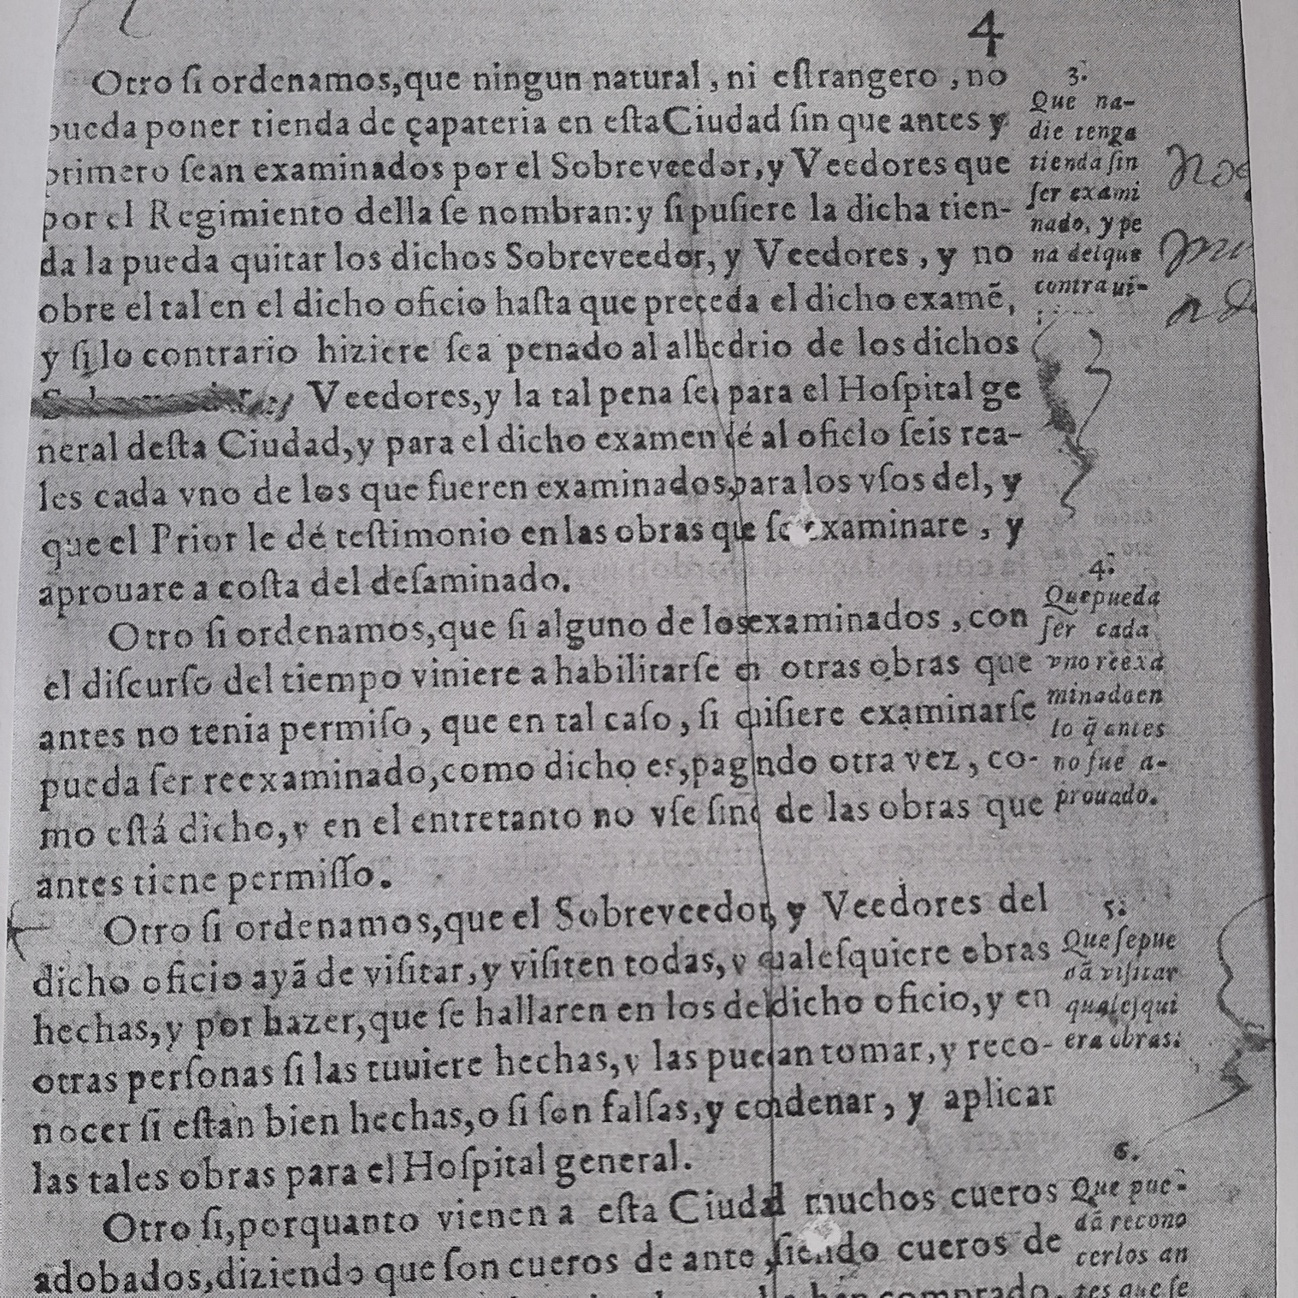 4
Otro ſi ordenamos,que ningun natural, ni eſtrangero, no
pueda poner tienda de çapateria en eſta Ciudad ſin que antes y
primero ſean examinados por el Sobreveedor,y Veedores que
por el Regimiento della ſe nombran: y ſi puſiere la dicha tien-
da la pueda quitar los dichos Sobreveedor, y Veedores, y no
obre el tal en el dicho oficio haſta que preceda el dicho examẽ,
y ſi lo contrario hiziere ſea penado al albedrio de los dichos
Veedores,y la tal pena ſea para el Hoſpital ge
neral deſta Ciudad,y para el dicho examen dé al oficio ſeis rea-
les cada vno de los que fueren examinados,para los vſos del, y
que el Prior le dé teſtimonio en las obras que ſe examinare, y
aprouare a coſta del deſaminado.
Otro ſi ordenamos,que ſi alguno de los examinados, con
el diſcurſo del tiempo viniere a habilitarſe en otras obras que
antes no tenia permiſo, que en tal caſo, ſi quiſiere examinarſe
pueda ſer reexaminado,como dicho es,pagando otra vez, co-
mo eſtá dicho,y en el entretanto no vſe ſino de las obras que
antes tiene permiſſo.
Otro ſi ordenamos,que el Sobreveedor, y Veedores del
dicho oficio ayã de viſitar,y viſiten todas,y qualeſquiere obras
hechas,y por hazer,que ſe hallaren en los del dicho oficio,y en
otras perſonas ſi las tuuiere hechas,y las puedan tomar,y reco-
nocer ſi eſtan bien hechas,o ſi ſon falſas,y condenar, y aplicar
las tales obras para el Hoſpital general.
Otro ſi,porquanto vienen a eſta Ciudad muchos cueros
adobados,diziendo que ſon cueros de ante,ſiendo cueros de
han comprado,
3.
Que na-
die tenga
tienda ſin
ſer exami
nado, y pe
na del que
contraui-
4.
Que pueda
ſer cada
vno reexa
minado en
lo q̃ antes
no fue a-
prouado.
5.
Que ſe pue
dã viſitar
qualeſqui
era obras.
6.
Que pue-
dã recono
cerlos an
tes que ſe